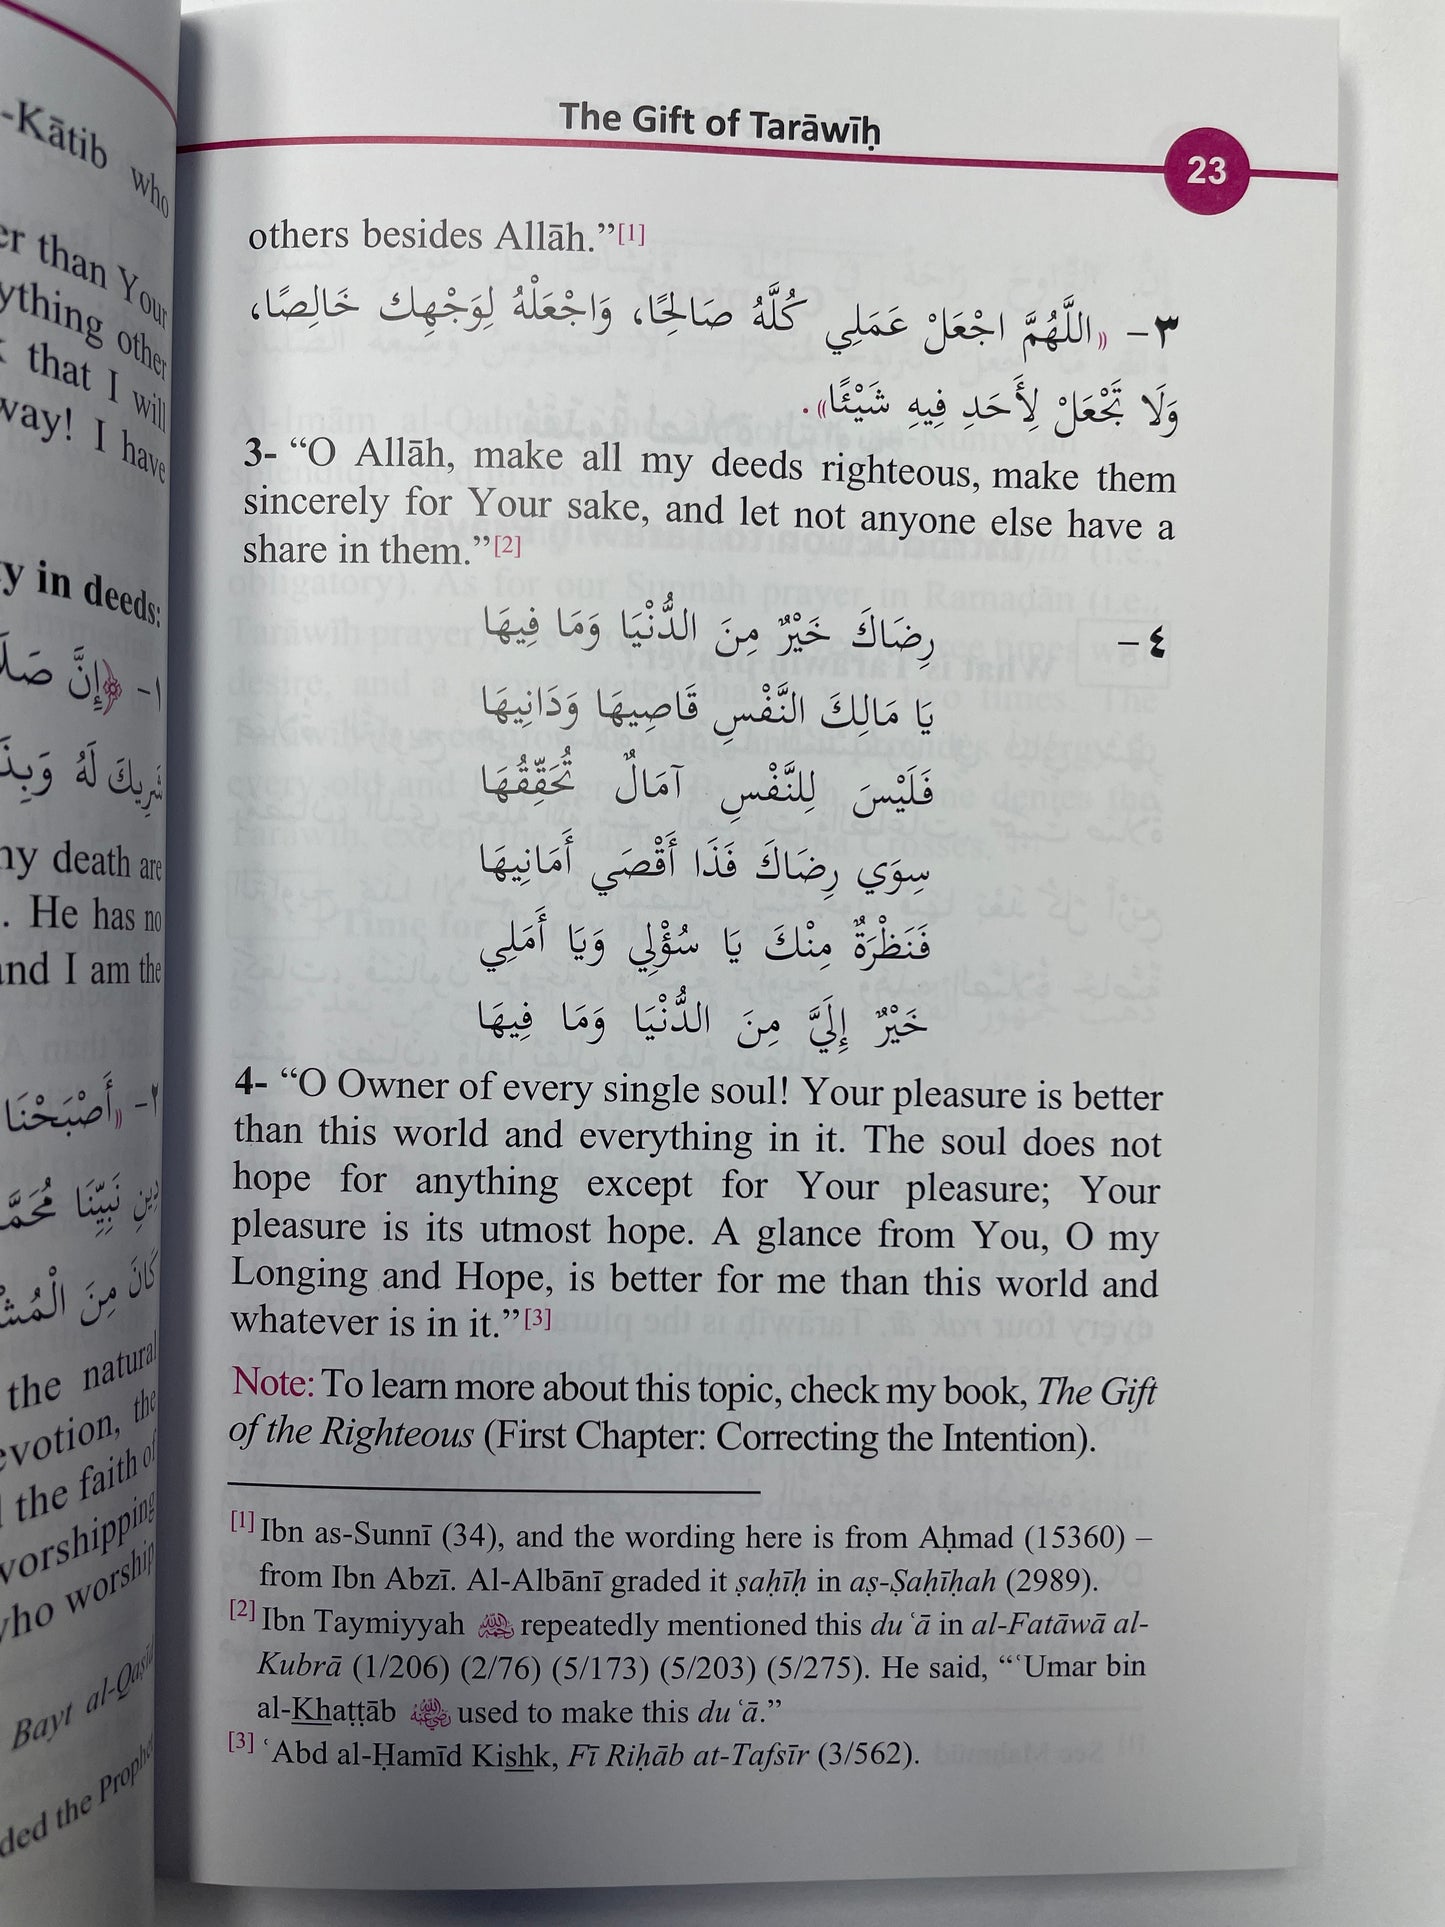 -Kātib who
er than Your
ything other
that I will
way! I have
y in deeds:
١- ﴿إِنَّ صَلَا
شَرِيكَ لَهُ وَبِذَ
ny death are
. He has no
and I am the
٢- «أَصْبَحْنَا
دِينِ نَبِيِّنَا مُحَمَّ
كَانَ مِنَ الْمُشْ
the natural
evotion, the
the faith of
worshipping
who worship
Bayt al-Qaṣīd
ded the Prophet
The Gift of Tarāwīḥ
23
others besides Allāh.”[1]
٣- «اللَّهُمَّ اجْعَلْ عَمَلِي كُلَّهُ صَالِحًا، وَاجْعَلْهُ لِوَجْهِكَ خَالِصًا،
وَلَا تَجْعَلْ لِأَحَدٍ فِيهِ شَيْئًا».
3- “O Allāh, make all my deeds righteous, make them
sincerely for Your sake, and let not anyone else have a
share in them.”[2]
٤- رِضَاكَ خَيْرٌ مِنَ الدُّنْيَا وَمَا فِيهَا
يَا مَالِكَ النَّفْسِ قَاصِيهَا وَدَانِيهَا
فَلَيْسَ لِلنَّفْسِ آمَالٌ تُحَقِّقُهَا
سِوَي رِضَاكَ فَذَا أَقْصَي أَمَانِيهَا
فَنَظْرَةٌ مِنْكَ يَا سُؤْلِي وَيَا أَمَلِي
خَيْرٌ إِلَيَّ مِنَ الدُّنْيَا وَمَا فِيهَا
4- “O Owner of every single soul! Your pleasure is better
than this world and everything in it. The soul does not
hope for anything except for Your pleasure; Your
pleasure is its utmost hope. A glance from You, O my
Longing and Hope, is better for me than this world and
whatever is in it.”[3]
Note: To learn more about this topic, check my book, The Gift
of the Righteous (First Chapter: Correcting the Intention).
[1] Ibn as-Sunnī (34), and the wording here is from Aḥmad (15360) –
from Ibn Abzī. Al-Albānī graded it ṣaḥīḥ in aṣ-Ṣaḥīḥah (2989).
[2] Ibn Taymiyyah repeatedly mentioned this duʿā in al-Fatāwā al-
Kubrā (1/206) (2/76) (5/173) (5/203) (5/275). He said, “ʿUmar bin
al-Khaṭṭāb used to make this duʿā.”
[3] ʿAbd al-Ḥamīd Kishk, Fī Riḥāb at-Tafsīr (3/562).